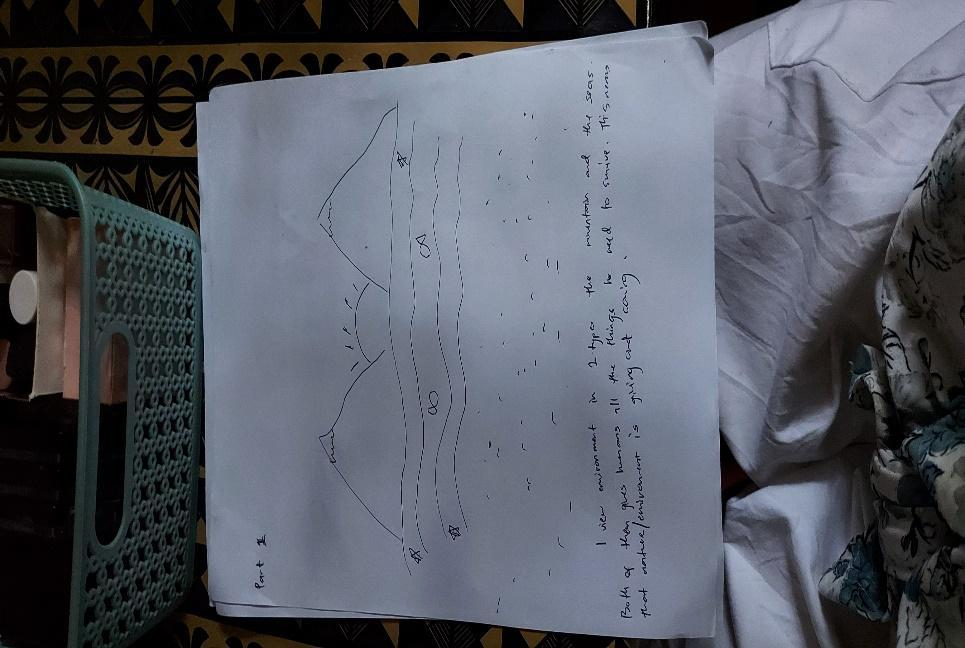 Part I
I view environment in 2 types the mountain and the seas.
Both of them gives humans all the things he need to survive. This means
that nature/environment is giving and caring.